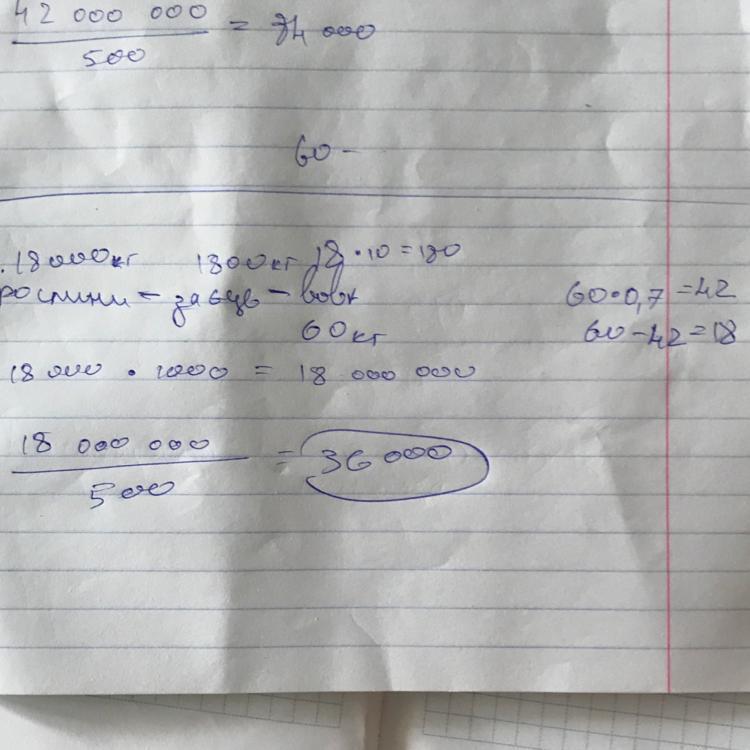 42 000 000 / 500 = 84 000
60 -
18000кг 1800кг 18 · 10 = 180
рослини - заєць - вовк
60кг
60 · 0,7 = 42
60 - 42 = 18
18 000 · 1000 = 18 000 000
18 000 000 / 500 = 36 000